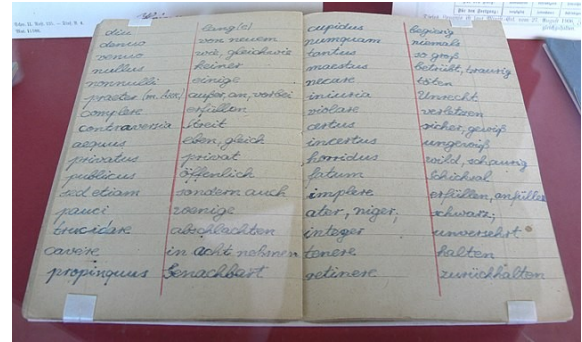 diu lang(e)
denuo von neuem
venuo wie, gleichwie
nullus keiner
nonnulli einige
praeter (m. Akk.) außer, an, vorbei
complere erfüllen
controversia Streit
aequus eben, gleich
privatus privat
publicus öffenlich
sed etiam sondern auch
pauci wenige
trucidare abschlachten
cavere in acht nehmen
propinquus benachbart
cupidus begierig
numquam niemals
tantus so groß
maestus betrübt, traurig
necare töten
iniuria Unrecht
violare verletzen
certus sicher, gewiß
incertus ungewiß
horridus wild, schaurig
fatum Schicksal
implere erfüllen, anfüllen
ater, niger, schwarz,
integer unversehrt
tenere halten
retinere zurückhalten